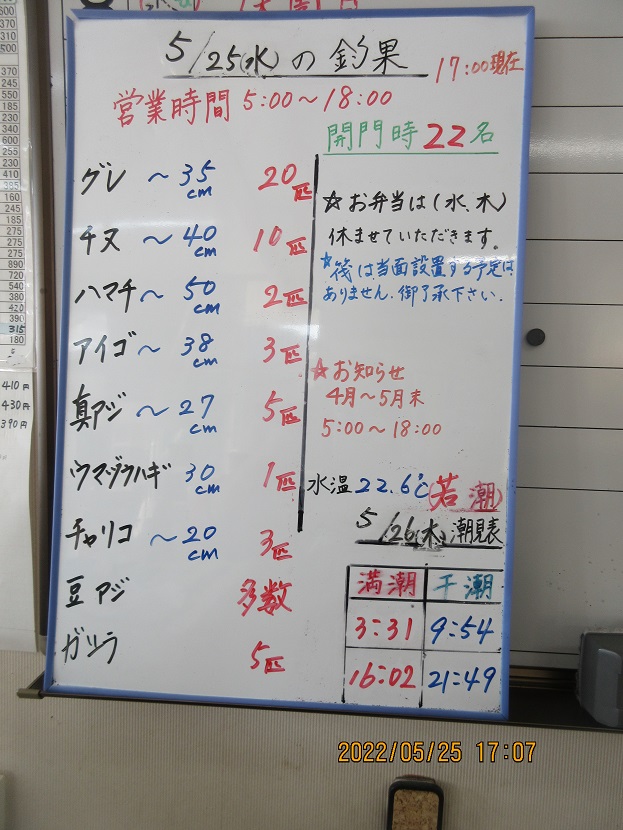 5/25(水)の釣果
17:00現在
営業時間 5:00～18:00
開門時22名
グレ ～35cm 20匹
チヌ ～40cm 10匹
ハマチ～50cm 2匹
アイゴ～38cm 3匹
真アジ～27cm 5匹
ウマヅラハギ 30cm 1匹
チャリコ～20cm 3匹
豆アジ 多数
ガシラ 5匹
☆お弁当は(水、木)
休ませていただきます。
☆筏は当面設置する予定は
ありません。御了承下さい。
☆お知らせ
4月～5月末
5:00～18:00
水温22.6℃(若潮)
5/26(木)潮見表
満潮 干潮
3:31 9:54
16:02 21:49
410円
430円
390円
2022/05/25 17:07